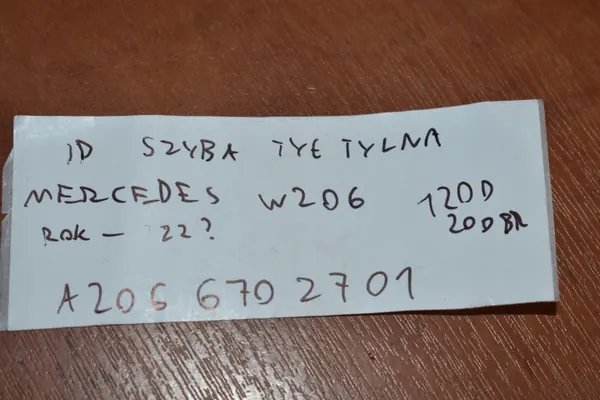 ID SZYBA TYE TYLNA
MERCEDES W206 120D
ROK - 22? 20D BR
A206 670 2701